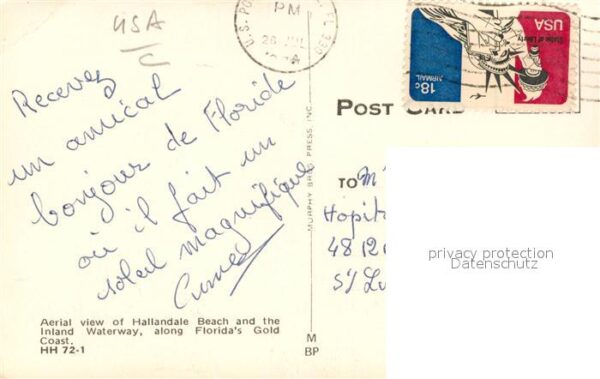 USA
C
U.S. PO
PM
FL 330
26
Statue of Liberty
USA
18c
AIRMAIL
POST CARD
Recevez
un amical
bonjour de Floride
où il fait un
soleil magnifique
MURPHY BROS PRESS, INC.
TO
Hopit
S/ Lu
privacy protection
Datenschutz
Aerial view of Hallandale Beach and the
Inland Waterway, along Florida's Gold
Coast.
HH 72-1
M
BP